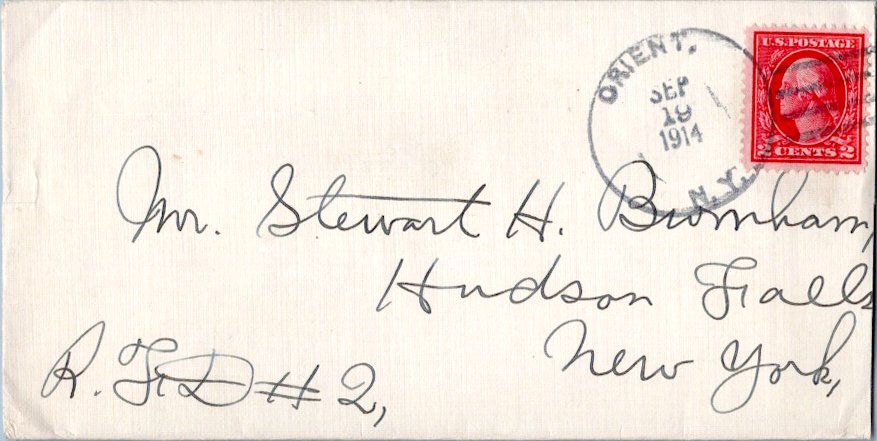 ORIENT.
SEP
19
1914
N.Y.
U.S. POSTAGE
2 CENTS 2
Mr. Stewart H. Bromham,
Hudson Falls
New York,
R.F.D #2,